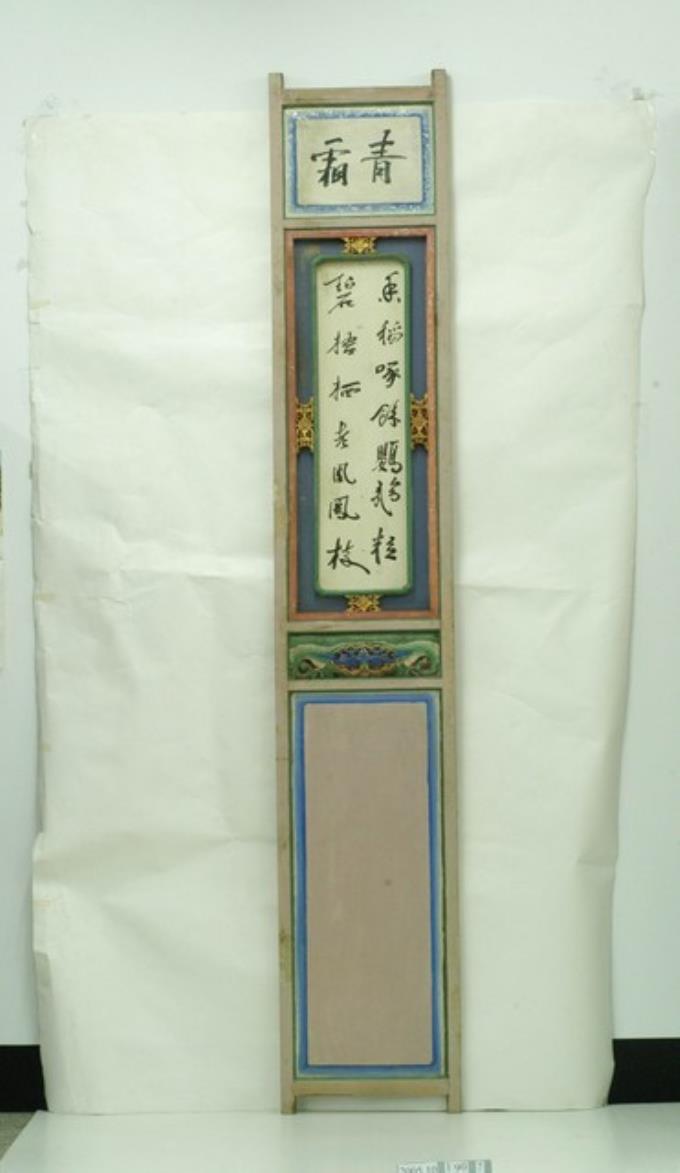 青霜
香稻啄餘鸚鵡粒
碧梧栖老凰鳳枝